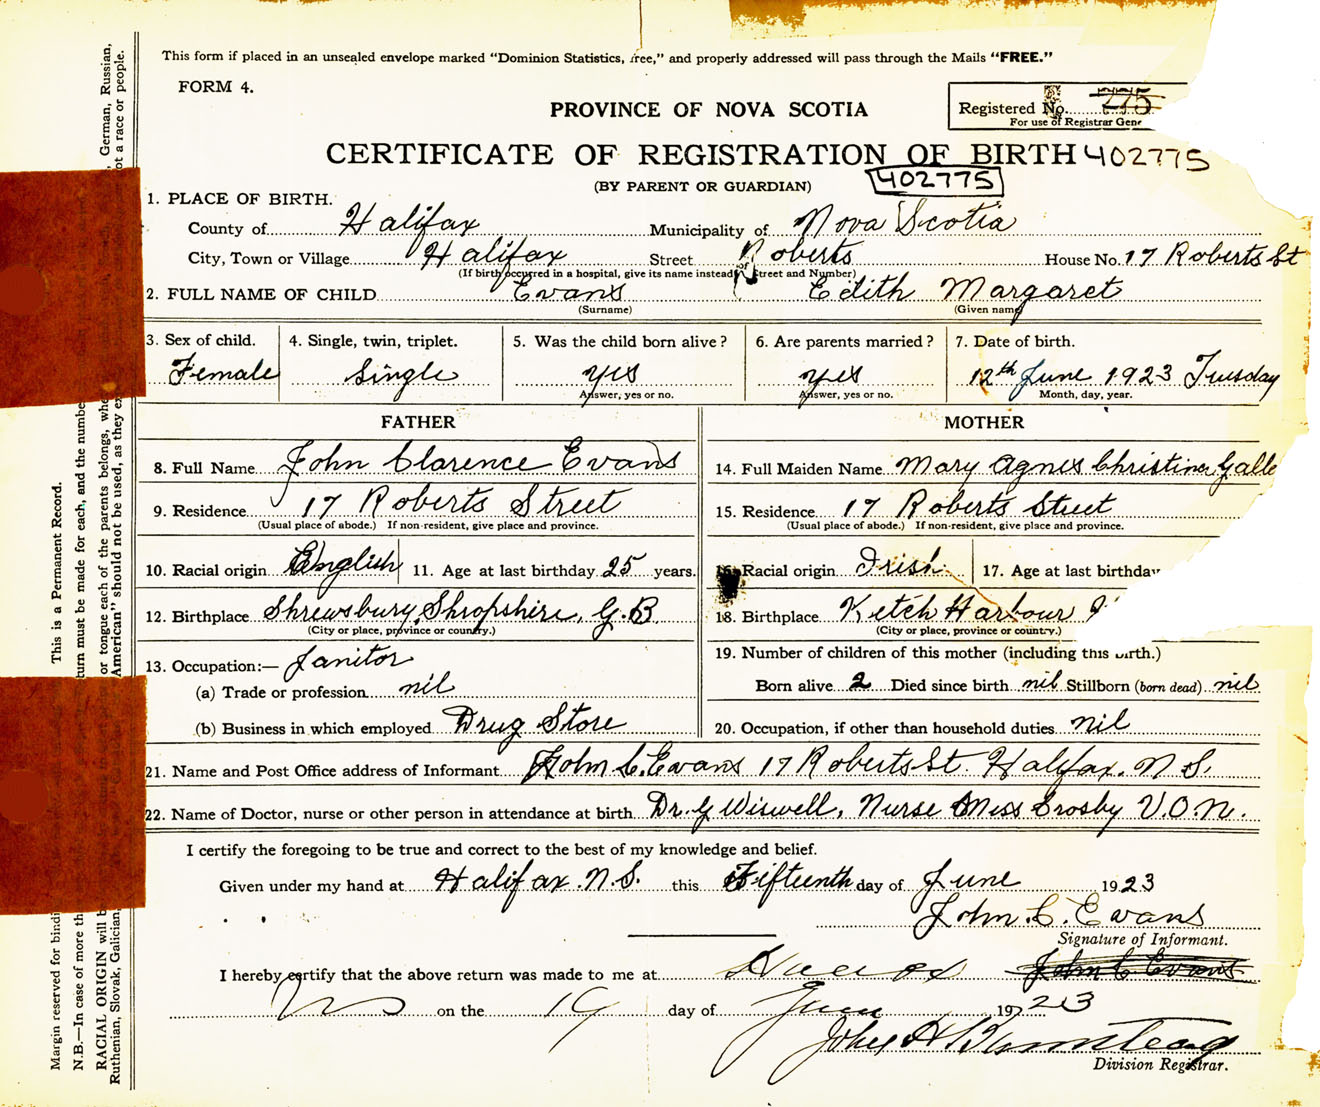 This form if placed in an unsealed envelope marked "Dominion Statistics, free," and properly addressed will pass through the Mails "FREE."
FORM 4.
Registered No. 275
For use of Registrar Gen
PROVINCE OF NOVA SCOTIA
CERTIFICATE OF REGISTRATION OF BIRTH 402775
(BY PARENT OR GUARDIAN) 402775
1. PLACE OF BIRTH.
County of Halifax Municipality of Nova Scotia
City, Town or Village Halifax Street Roberts House No. 17 Roberts St
(If birth occurred in a hospital, give its name instead of Street and Number)
2. FULL NAME OF CHILD Evans Edith Margaret
(Surname) (Given name)
3. Sex of child. 4. Single, twin, triplet. 5. Was the child born alive? 6. Are parents married? 7. Date of birth.
Female Single yes yes 12th June 1923 Tuesday
Answer, yes or no. Answer, yes or no. Month, day, year.
FATHER MOTHER
8. Full Name John Clarence Evans 14. Full Maiden Name Mary Agnes Christina Galle
9. Residence 17 Roberts Street 15. Residence 17 Roberts Street
(Usual place of abode.) If non-resident, give place and province. (Usual place of abode.) If non-resident, give place and province.
10. Racial origin English 11. Age at last birthday 25 years. 16. Racial origin Irish 17. Age at last birthday
12. Birthplace Shrewsbury, Shropshire, G.B 18. Birthplace Ketch Harbour
(City or place, province or country.) (City or place, province or country.)
13. Occupation:— Janitor 19. Number of children of this mother (including this birth.)
(a) Trade or profession nil Born alive 2 Died since birth nil Stillborn (born dead) nil
(b) Business in which employed Drug Store 20. Occupation, if other than household duties nil
21. Name and Post Office address of Informant John C. Evans 17 Roberts St. Halifax. N.S.
22. Name of Doctor, nurse or other person in attendance at birth Dr. G Wiswell, Nurse Miss Crosby V.O.N.
I certify the foregoing to be true and correct to the best of my knowledge and belief.
Given under my hand at Halifax. N.S. this Fifteenth day of June 1923
John C. Evans
Signature of Informant.
I hereby certify that the above return was made to me at Halifax John C Evans
NS on the 19 day of June 1923
John H
Division Registrar.
Margin reserved for bindi This is a Permanent Record.
N.B.—In case of more th turn must be made for each, and the numbe
RACIAL ORIGIN will b or tongue each of the parents belongs, whe , German, Russian,
Ruthenian, Slovak, Galician, American" should not be used, as they ex ot a race or people.